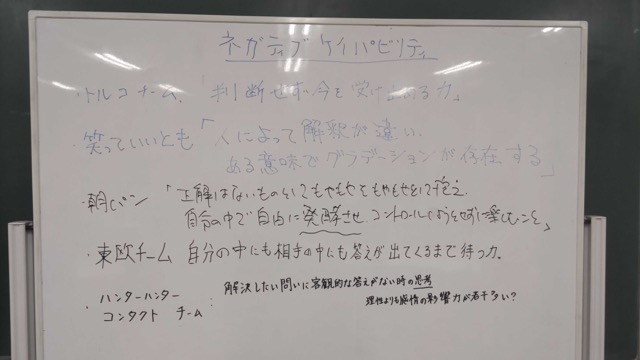 ネガティブ ケイパビリティ
・トルコチーム、「判断せず今を受け止める力」
・笑っていいとも「人によって解釈が違い、
ある意味でグラデーションが存在する」
・朝パン「正解はないものとしてもやもやをもやもやとして抱え、
自分の中で自由に発酵させ、コントロールしようとせずに楽しむこと」
・東欧チーム 自分の中にも相手の中にも答えが出てくるまで待つ力。
・ハンターハンター
コンタクト チーム :
解決したい問いに客観的な答えがない時の思考
理性よりも感情の影響力が若干多い?